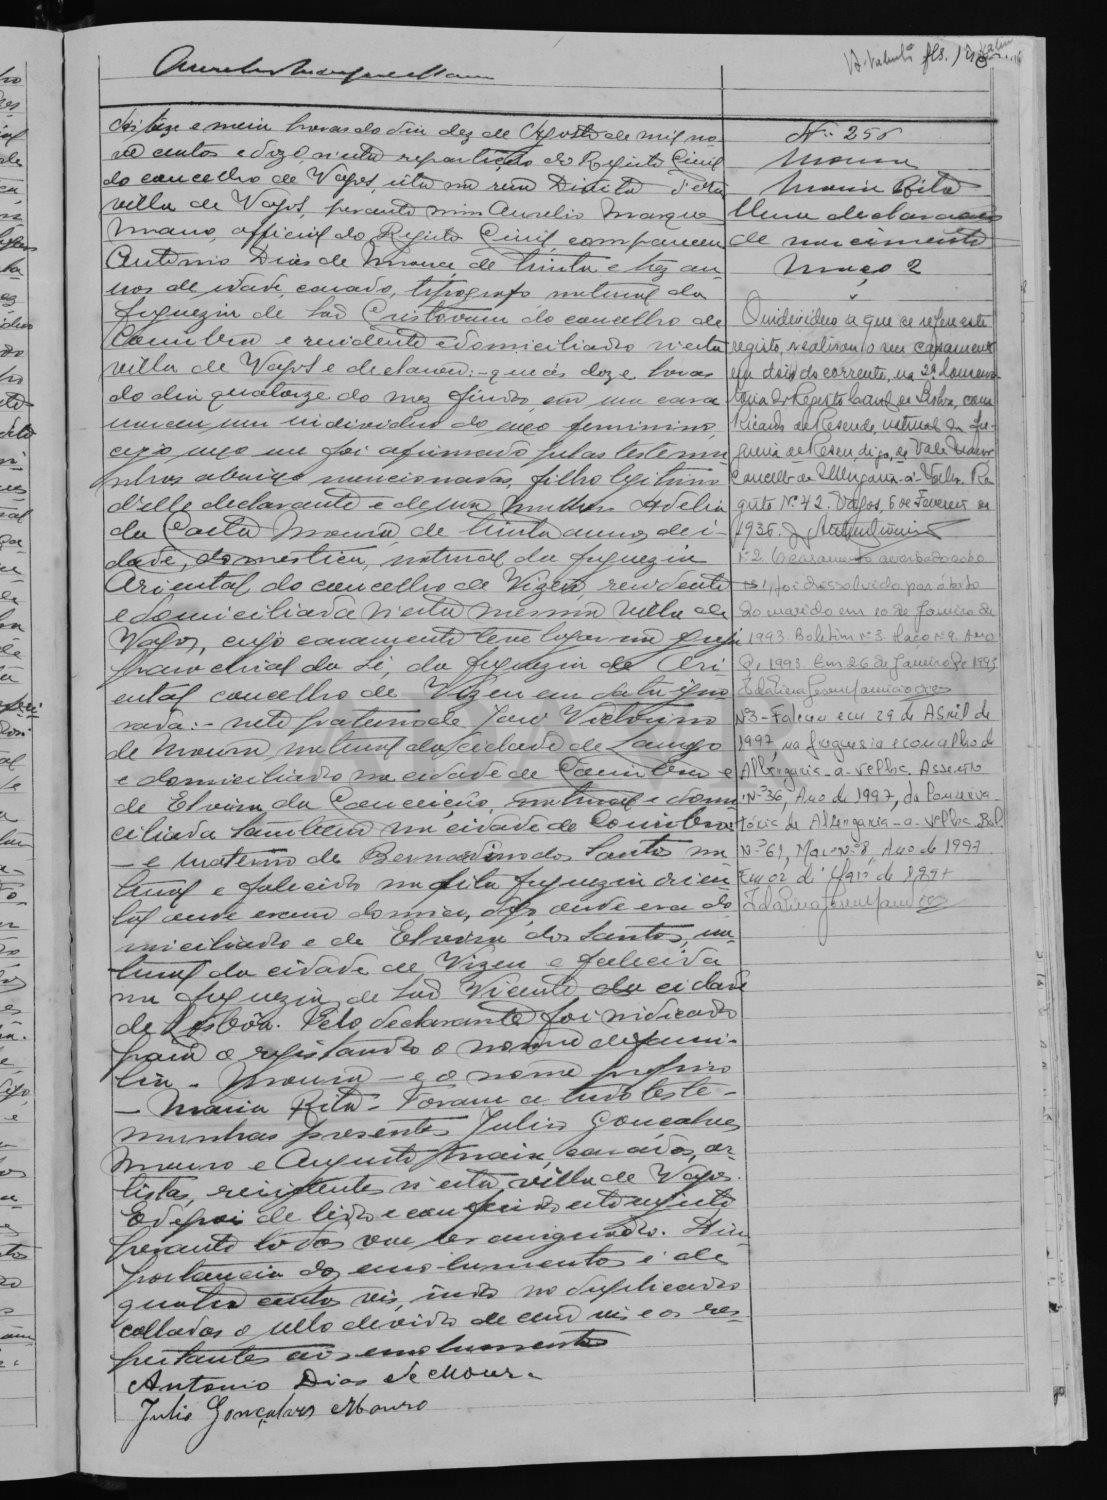 Aurelio Marques Mano
fls. 128
Ás treze e meia horas do dia dez de Agosto de mil no
ve centos e doze, n'esta repartição do Registo Civil
do concelho de Vagos, sita na rua Direita d'esta
villa de Vagos, perante mim Aurelio Marques
Mano, official do Registo Civil, compareceu
Antonio Dias de Moura, de trinta e trez an-
nos de idade, casado, typografo natural da
freguezia de São Cristovam do concelho de
Coimbra e residente e domiciliado n'esta
villa de Vagos e declarou:- que ás doze horas
do dia quatorze do mez findo, em uma casa
nasceu um individuo do sexo feminino,
cujo sexo me foi afirmado pelas testemu-
nhas abaixo mencionadas, filho legitimo
d'elle declarante e de sua mulher Adelia
da Costa Moura, de trinta annos de i-
dade, domestica, natural da freguezia
Oriental do concelho de Vizeu, residente
e domiciliada n'esta mesma villa de
Vagos, cujo casamento teve logar na egreja
parochial da Sé, da freguezia de Ori-
ental concelho de Vizeu em data igno
rada:- neto paterno de José Victorino
de Moura natural da cidade de Lamego
e domiciliado na cidade de Coimbra e
de Elvira da Conceição, natural e domi
ciliada tambem na cidade de Coimbra
- e materno de Bernardino dos Santos na
tural e falecido na dita freguezia orien
tal onde era do
miciliado e de Elvira dos Santos, na-
tural da cidade de Vizeu e falecida
na freguezia de São Vicente da cidade
de Lisbôa. Pelo declarante foi indicado
para o registando o nome de fami-
lia - Moura - e o nome proprio
- Maria Rita - Foram a tudo teste-
munhas presentes Julio Gonçalves
Mouro e Augusto Maia, casados, ar-
tistas, residentes n'esta villa de Vagos.
E depois de lido e conferido este registo
perante todos vae ser assignado. A im
portancia dos emolumentos é de
quatro centos reis, indo no duplicado
collados o sello devido de cem reis e os res-
peitantes aos emolumentos
Antonio Dias de Moura
Julio Gonçalves Mouro
Nº 256
Moura
Maria Rita
Uma declaração
de nascimento
Maço 2
O individuo a que se refere este
registo, realisou o seu casamento
em dois do corrente, na 2ª Conserva
toria do Registo Civil de Lisboa, com
Ricardo de Resende, natural da fre-
guesia de de Vale Maior
Concelho de Albergaria-a-Velha. Re
gisto Nº 42. Vagos, 6 de Fevereiro de
1936.
Nº 2. O casamento averbado sob o
nº 1, foi dissolvido por óbito
do marido em 10 de Janeiro de
1993. Boletim nº 3 Maço nº 2. Ano
de 1993. Em 26 de Janeiro de 1993
Nº3 - Faleceu em 29 de Abril de
1997, na freguesia e concelho de
Albergaria-a-Velha. Assento
Nº 36, Ano de 1997, da Conserva-
tória de Albergaria-a-Velha. Bol.
Nº 61, Maço Nº 8, Ano de 1997.
Em 02 de Maio de 1997
ADAVR